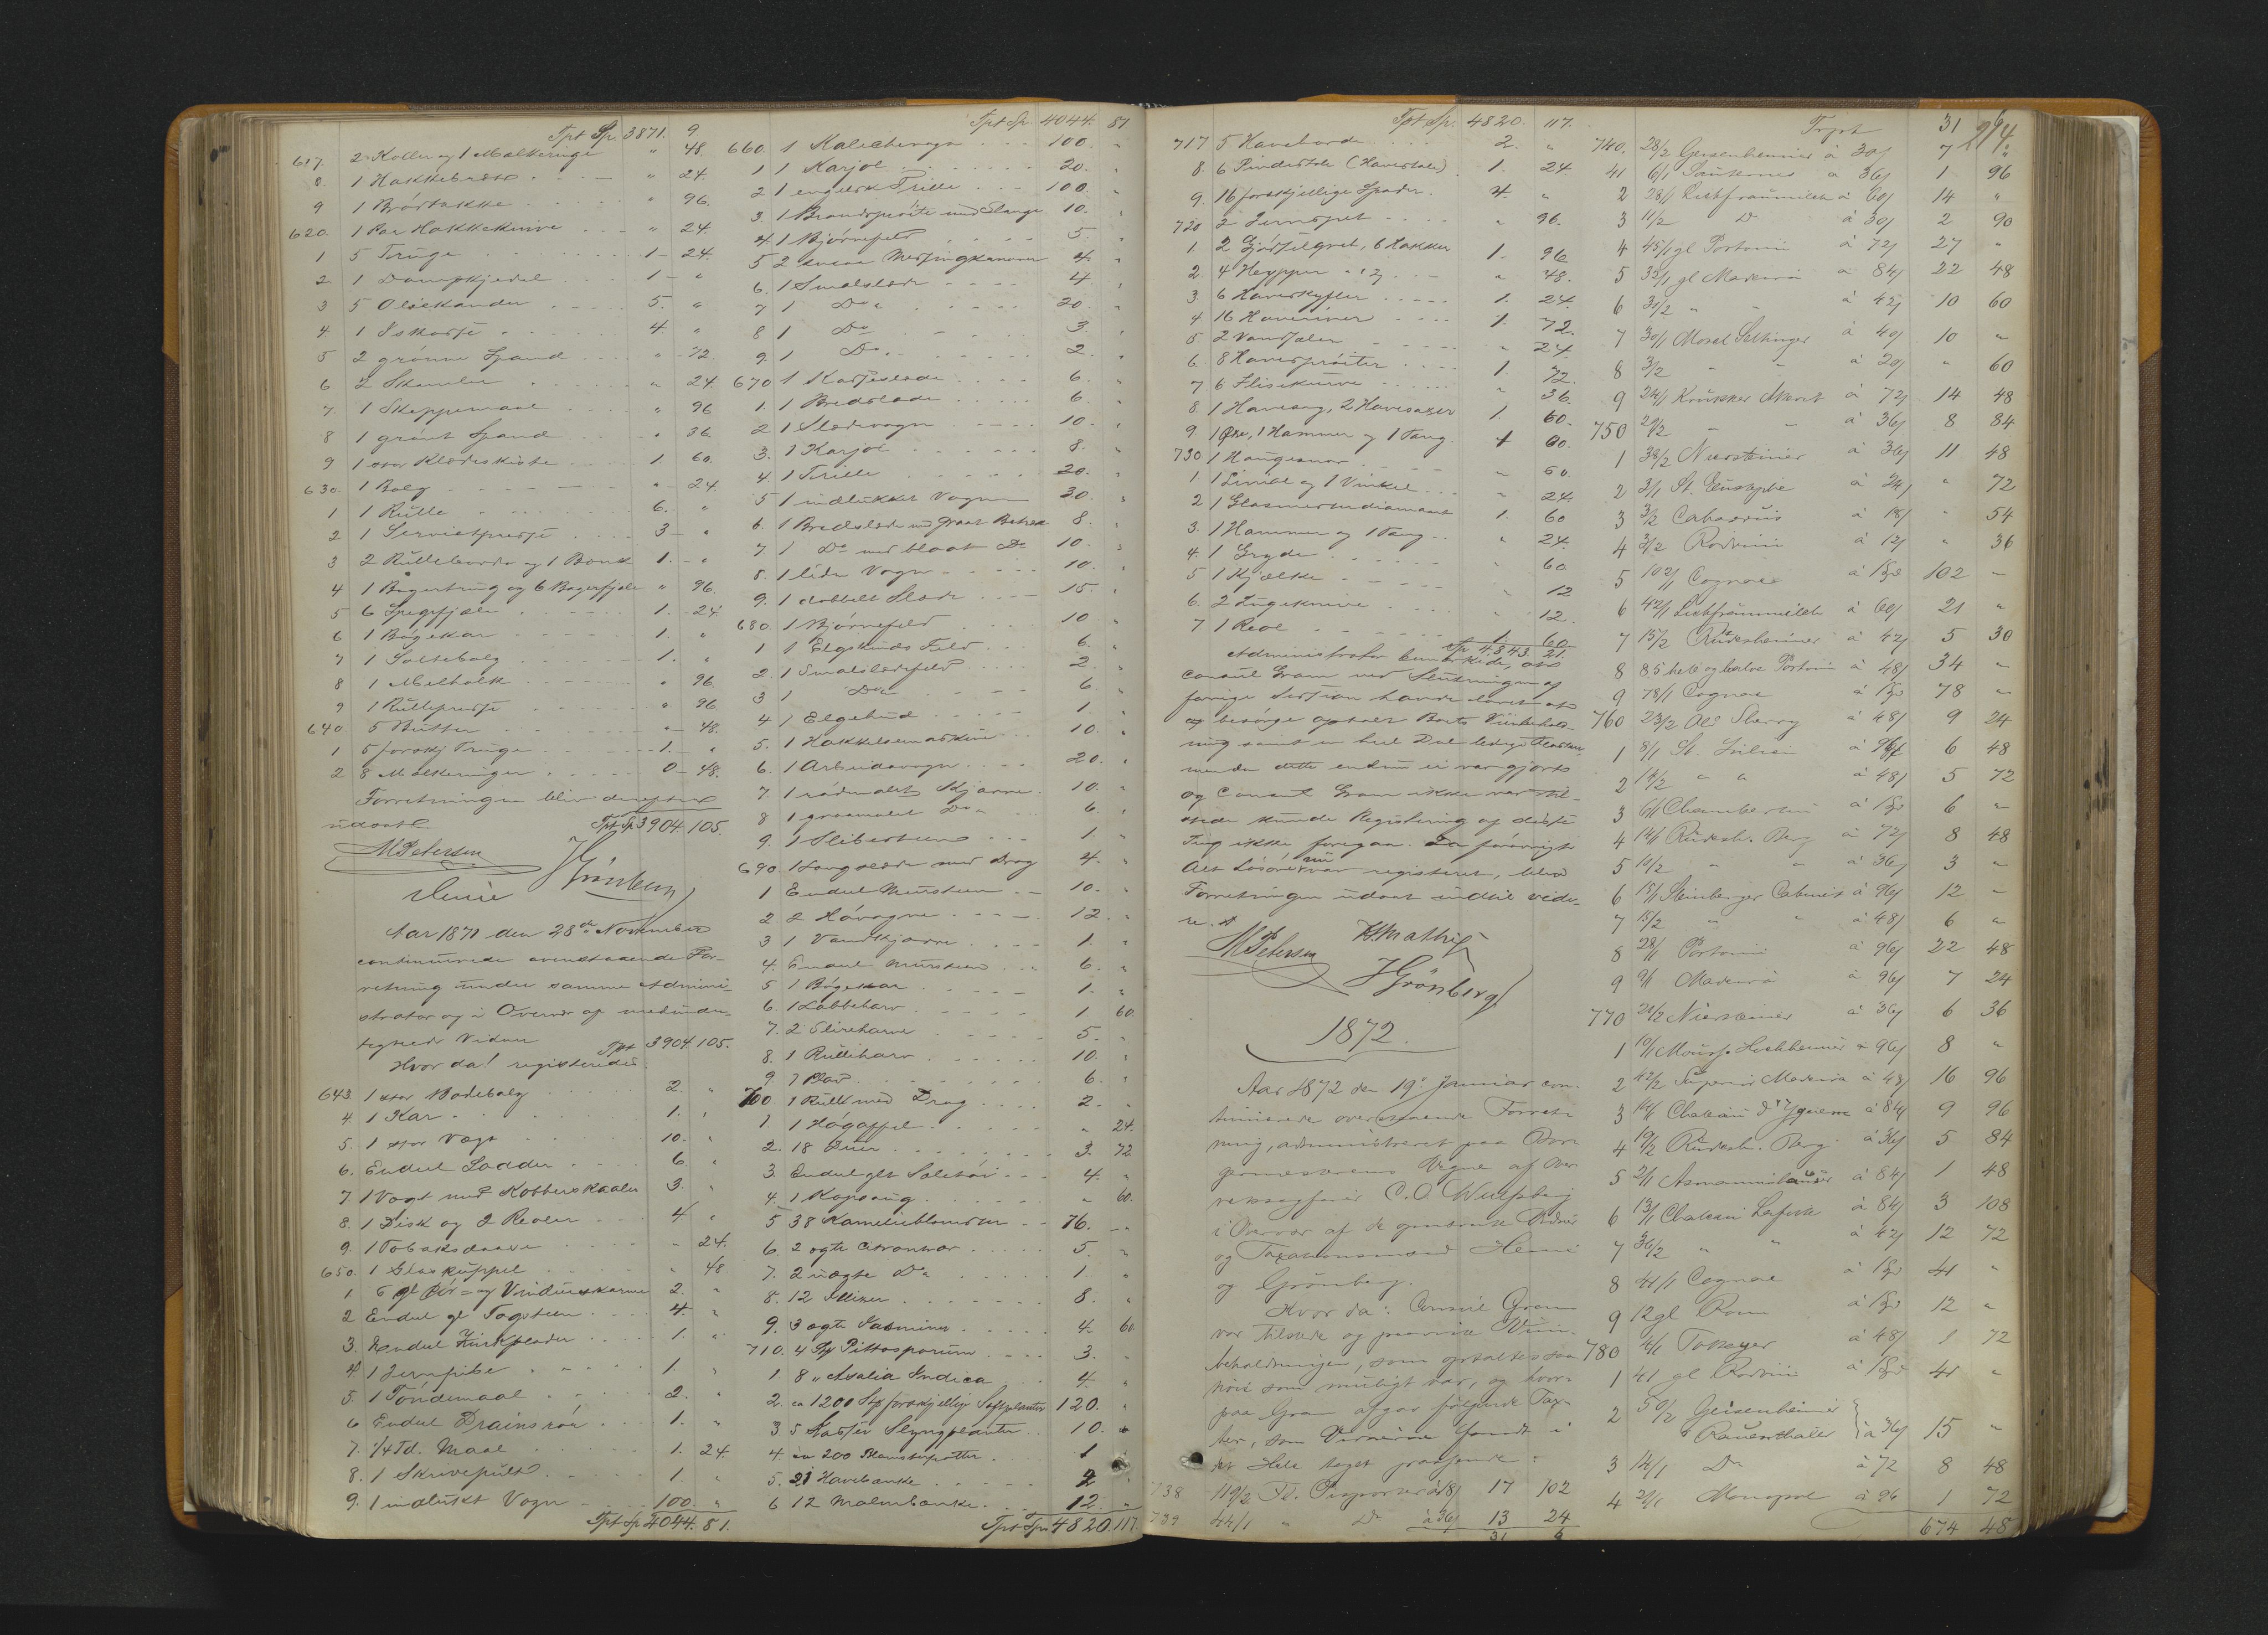 Tpt Sp. 3871. 9
617. 2 Koller og 1 Malkeringe " 48.
8. 1 Hakkebræt " 24.
9 1 Brødbakke " 96.
620. 1 Par Hakkeknive " 24.
1 5 Trúge 1 - 24.
2 1 Dampkjedel 1 - "
3 5 Oliekander 5. "
4. 1 Iskasse 4 "
5 2 grønne Spand " - 72
6 2 Skamler " 24.
7. 1 Skjeppemaal " 96
8 1 grønt Spand " 36
9 1 stor Klædeskiste 1. 60.
630. 1 Balg " - 24.
1 1 Rúlle 6. "
2 1 Servietpresse 3 - "
3 2 Rúlleborde og 1 Bænk 1. - "
4 1 Bagertrug og 6 Bagerfjæle " 96.
5 6 Spegefjæle 1. 24
6 1 Bøgekar 1. "
7 1 Saltebalg 1. "
8 1 Melholk " 96.
9 1 Rúllepresse " 96
640. 5 Bútter " - 48.
1 5 forskj Trúge 1. - "
2 8 Malkeringer 0 - 48.
Forretningen blev derefter
údsat Tpt Sp 3904. 105.
M Petersen
JGrönberg
Aar 1871 den 28de November
continúerede ovenstaaende For-
retning únder samme Admini-
strator og i Overvær af medúnder-
tegnede Vidner Tpt 3904. 105.
Hvor da! registreredes
643. 1 stor Badebalg 2. "
4. 1 Kar 1. "
5. 1 stor Vægt 10. "
6. Endeel Ladder 6 "
7 1 Vægt med Kobberskaaler 3. "
8. 1 Disk og 2 Reoler 4 "
9. 1 Tobaksdaase " 24.
650. 1 Glaskúppel " 48
1 6 gl Dør= og Vindueskarme 2. "
2 Endel gl Tagsteen 4. "
3. Endeel Zinkplader 1. "
4. 1 Jernpibe 1. "
5. 1 Töndemaal 2. "
6 Endeel Drainsrör 1. "
7. 1/4 Td. Maal 1. 24.
8. 1 Skrivepúlt 1. "
9. 1 indlúkt Vogn 100. "
Tpt Sp 4044. 81.
Tpt Sp. 4044. 81
660. 1 Kalechevogn 100. "
1 1 Karjol 20. "
2 1 engelsk Trille 100. "
3. 1 Brandsprøite med Slange 10. "
4. 1 Bjørnefeld 5. "
5 2 smaa Messingkanoner 4. "
6. 1 Smalslæde 4. "
7 1 Do 20. "
8 1 Do 3. "
9. 1 Do 2. "
670 1 Kasseslæde 6. "
1. 1 Bredslæde 6. "
2 1 Slædevogn 10. "
3. 1 Karjol 8. "
4. 1 Trille 20. "
5 1 indlukket Vogn 30. "
6. 1 Bredslæde med graat Betræk 8. "
7. 1 Do med blaat Do 10. "
8. 1 liden Vogn 10. "
9. 1 dobbelt Slæde 15. "
680. 1 Bjørnefeld 10 "
1 1 Elgskinds Feld 6. "
2. 1 Smalslædefeld 2. "
3 1 Do 6. "
4 1 Elgehúd 1. "
5. 1 Hakkelsemaskine 10. "
6. 1 Arbeidsvogn 20. "
7 1 rödmalet Kjærre 10. "
8 1 graamalet Do 6. "
9. 1 Slibesteen 1. "
690 1 Langslæde med Drag 4. "
1 Endeel Múrsteen 10. "
2. 2 Høvogne 12. "
3 1 Vandkjærre 1. "
4. Endeel Múrsteen 6. "
5 1 Bøgekar 1. "
6. 1 Labbeharv 1 60
7. 2 Slireharve 5. "
8. 1 Rulleharv 10. "
9. 7 Plove 6. "
700. 1 Rulle med Drag 2. "
1. 1 Høgaffel " 24.
2. 18 River 3. 72
3. Endeel gll Seletöi 4. "
4. 1 Kapsaug " 60.
5 38 Kameliablomster 76. "
6. 2 ægte Citrontrær 5. "
7. 2 uægte Do 1 "
8. 12 Millier 8. "
9. 3 ægte Jasminer 4 60
710. 4 St Pittosporum 3. "
1. 8 " Asalia Indica 4. "
2. ca 1200 Stk forskjellige Saftplanter 120. "
3 5 Kasser Slyngplanter 10. "
4. ca 200 Blomsterpotter 1 "
5. 21 Havebænke 2 "
6 12 Malmbænke 12. "
Tpt Sp. 4820. 117.
Tpt Sp. 4820. 117.
717 5 Haveborde 2. "
8. 6 Pindestole (Havestole) 1. 24
9. 16 forskjellige Spader 4. "
720 2 Jernspet " 96.
1 2 Gjødselgreb, 6 Hakker 1. 96
2 4 Hypper " 48.
3. 6 Haveskyfler 1. 24
4 16 Haveriver 1. 72.
5. 2 Vandseler " 24.
6. 8 Havesprøiter 1. 72.
7. 6 Fliseknive " 36.
8 1 Havesag, 2 Havesaxer 1. 60.
9 1 Øxe, 1 Hammer og 1 Tang 1 60.
730 1 Haugesnor " 60.
1 1 Lineal og 1 Vinkel " 24
2 1 Glasmesterdiamant 1. 60
3. 1 Hammer og 1 Tang " 24.
4. 1 Gryde " 60
5 1 Kjælke " 12
6. 2 Lúgeknive " 12.
7 1 Reol 1. 60
Sp 4843. 21.
Administrator bemærkede, at
Consul Gram ved Slutningen af
forrige Session havde lovet at
besörge optalt Boets Viinbehold-
ning samt en heel Deel ledige Flasker
men da dette endnu ei var gjort
og Consul Gram ikke var til-
stede kunde Registrering af disse
Ting ikke foregaa. Da forövrigt
Alt Lösöre nú var registreret, blev
Forretningen udsat indtil vide-
re.
M Petersen HMathis
JGrönberg
1872.
Aar 1872 den 19de Januar con-
tinúerede ovenstaaende Forret-
ning, administreret paa Bor-
germesterens Vegne af Over-
retssagförer C.O. Wulfsberg
i Overvær af de
og Taxationsmænd
og Grönberg.
Hvor da: Consul Gram
var tilstede og paaviste Viin-
beholdningen, som optaltes saa
nöie som múligt var, og hvor-
paa Gram afgav følgende Tax-
ter, som Vidnerne fandt i
det Hele taget passende:
738 119/2 Fl. Pisporter à 18s 17 102
739 44/1 " Do à 36s 13 24
31 6
Trpt 31 6
214
740. 28/2 Geisenheimer à 30s 7 "
41 6/1 Sauternes à 36s 1 96
2 28/1 Liebfraumilch à 60s 14 "
3 11/2 Do à 30s 2 90
4 45/1 gl Portviin à 72s 27 "
5 32/1 gl Madeira à 84s 22 48
6 31/2 " à 42s 10 60
7 30/1 Mosel Zeltinger à 40s 10 "
8 3/2 " à 20s " 60
9 24/1 Krukker à 72s 14 48
750 29/2 " " à 36s 8 84
1 38/2 Niersteiner à 36s 11 48
2 3/1 St. Eustephe à 24s " 72
3 3/2 Cabarrús à 18s " 54
4 3/2 Rödviin à 12s " 36
5 102/1 Cognac à 1Spd 102 -
6 42/1 Liebfraúmilch à 60s 21 "
7 15/2 Rúdesheimer à 42s 5 30
8 85 hele og halve Portviin à 48s 34 "
9 78/1 Cognac à 1Spd 78 "
760 23/2 Old Sherry à 48s 9 24
1 8/1 St. Julien à 96s 6 48
2 14/2 " " à 48s 5 72
3 6/1 Chambertin à 1Spd 6 "
4 14/1 Rúdesh. Berg à 72s 8 48
5 10/2 " " à 36s 3 "
6 15/1 Steinberger Cabinet à 96s 12 -
7 15/2 " " à 48s 6 "
8 28/1 Portviin à 96s 22 48
9 9/1 Madeira à 96s 7 24
770 21/2 Niersteiner à 36s 6 36
1 10/1 Mouss. Hochheimer à 96s 8 "
2 42/2 Superior Madeira à 48s 16 96
3 14/1 Chateaú d'Yquem à 84s 9 96
4 19/2 Rúdesh. Berg à 36s 5 84
5 2/1 Asmannsháuser à 84s 1 48
6 /1 Chateau Lafitte à 84s 3 108
7 36/2 " " à 42s 12 72
8 41/1 Cognac à 1Spd 41 "
9 12 gl Rom à 1Spd 12 "
780 4/1 Tokayer à 48s 1 72
1 41 gl Rödviin à 1Spd 41 "
2 50/2 Geisenheimer
Rauenthaler à 36s 15 "
3 14/1 Do à 72 8 48
4 2/1 Monopol à 96 1 72
674 48